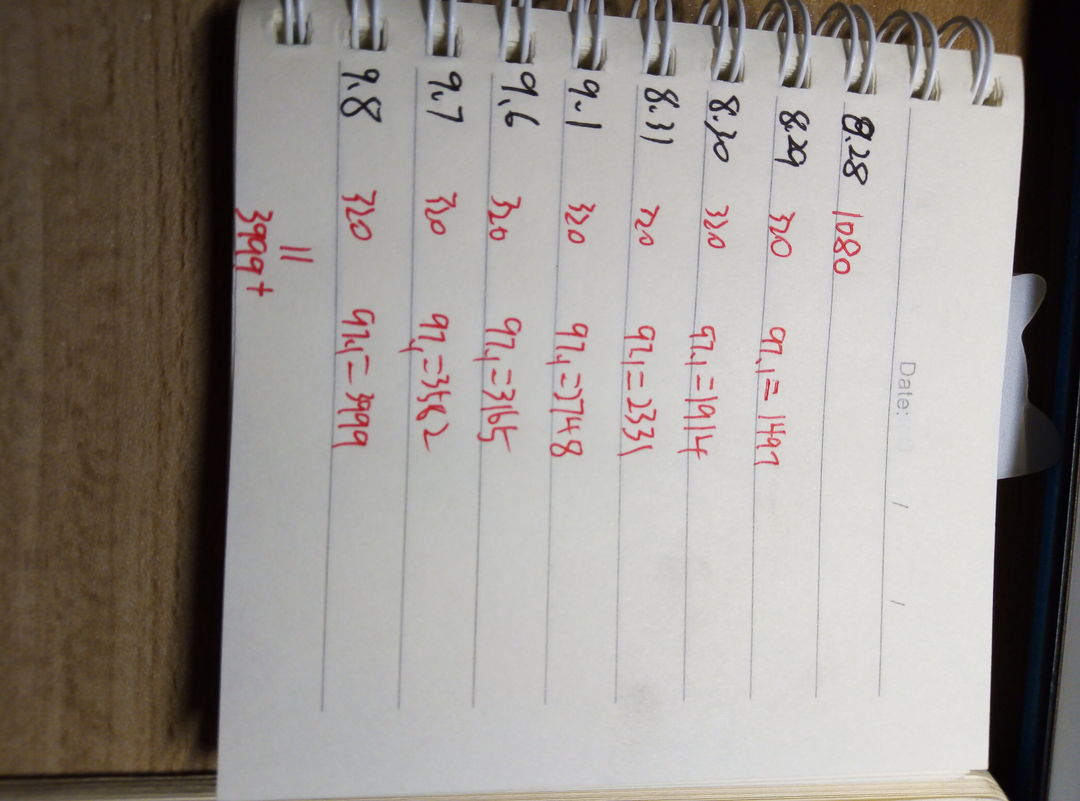 Date: / /
8.28 1080
8.29 320 97.1=1497
8.30 320 97.1=1914
8.31 320 97.1=2331
9.1 320 97.1=2748
9.6 320 97.1=3165
9.7 320 97.1=3582
9.8 320 97.1=3999
||
3999+